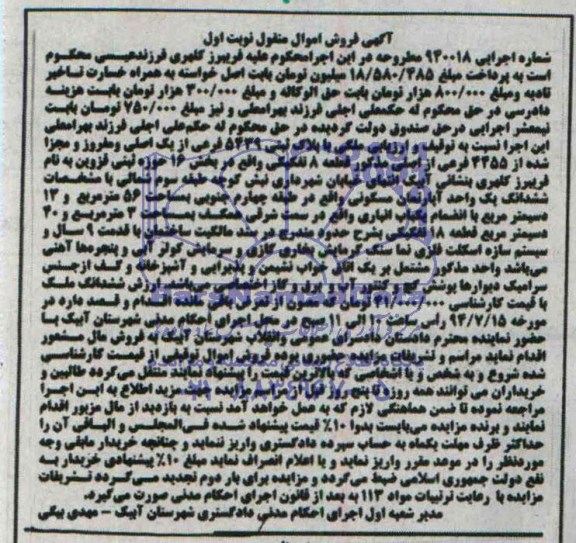 آگهی فروش اموال منقول نوبت اول
شماره اجرایی ۹۴۰۰۱۸ مطروحه در این اجرا محکوم علیه فریبرز کلهری فرزند عیسی محکوم
است به پرداخت مبلغ ۱۸/۵۸۰/۴۸۵ میلیون تومان بابت اصل خواسته به همراه خسارت تاخیر
تادیه و مبلغ ۸۰۰/۰۰۰ هزار تومان بابت حق الوکاله و مبلغ ۳۰۰/۰۰۰ هزار تومان بابت هزینه
دادرسی در حق محکوم له حکمعلی اجلی فرزند بهرامعلی و نیز مبلغ ۷۵۰/۰۰۰ تومان بابت
نیمعشر اجرایی در حق صندوق دولت گردیده در حق محکوم له حکم علی اجلی فرزند بهرامعلی
این اجرا نسبت به توقیف و ارزیابی ملکی با پلاک ثبتی ۵۴۳۹ فرعی از یک اصلی و مفروز و مجزا
شده از ۴۴۵۵ فرعی از اصلی مذکور قطعه ۸ تفکیکی واقع در بخش ۱۶ حوزه ثبتی قزوین به نام
فریبرز کلهری بنشانی آبیک خیابان شهرداری نبش کوچه طبقه سوم شمالی با مشخصات
ششدانگ یک واحد آپارتمان مسکونی واقع در طبقه چهارم جنوبی بمساحت ۵۶ مترمربع و ۱۳
دسیمتر مربع با انضمام یکباب انباری واقع در سمت شرقی همکف بمساحت ۳ مترمربع و ۴۰
دسیمتر مربع قطعه ۱۸ تفکیکی بشرح حدود مندرج در سند مالکیت ساختمان با قدمت ۹ سال و
سیستم سازه اسکلت فلزی نما سنگ گرمایش بخاری گازی و سرمایش کولر آبی و پنجره‌ها آهنی
می‌باشد واحد مذکور مشتمل بر یک اتاق خواب نشیمن و پذیرایی و آشپزخانه و کف از جنس
سرامیک دیوارها پوشش گچ و کنتور آب و برق و گاز اختصاصی می‌باشد ارزش ششدانگ ملک
با قیمت کارشناسی تومان اقدام و قصد دارد در
مورخه ۹۴/۷/۱۵ رأس ساعت ۱۰ الی ۱۱ صبح در محل اجرای احکام مدنی شهرستان آبیک با
حضور نماینده محترم دادستان دادسرای عمومی وانقلاب شهرستان آبیک به فروش مال مشمور
اقدام نماید مراسم و تشریفات مزایده حضوری بوده فروش اموال توقیفی از قیمت کارشناسی
شده شروع و به شخص و یا اشخاصی که بالاترین قیمت را پیشنهاد نمایند منتقل می‌گردد طالبین و
خریداران می توانند همه روزه تا پنج روز قبل از اجرای مزایده جهت مزید اطلاع به این اجرا
مراجعه نموده تا ضمن هماهنگی لازم که به عمل خواهد آمد نسبت به بازدید از مال مزبور اقدام
نمایند و برنده مزایده می‌بایست بدوا ۱۰٪ قیمت پیشنهاد شده فی‌المجلس و الباقی آن را
حداکثر ظرف مهلت یکماه به حساب سپرده دادگستری واریز ننماید و چنانچه خریدار مابقی وجه
موردنظر را در موعد مقرر واریز نماید و یا اعلام انصراف نماید مبلغ ۱۰٪ پیشنهادی خریدار به
نفع دولت جمهوری اسلامی ضبط می‌گردد و مزایده برای بار دوم تجدید می‌گردد تشریفات
مزایده با رعایت ترتیبات مواد ۱۱۳ به بعد از قانون اجرای احکام مدنی صورت می‌گیرد.
مدیر شعبه اول اجرای احکام مدنی دادگستری شهرستان آبیک – مهدی بیگی